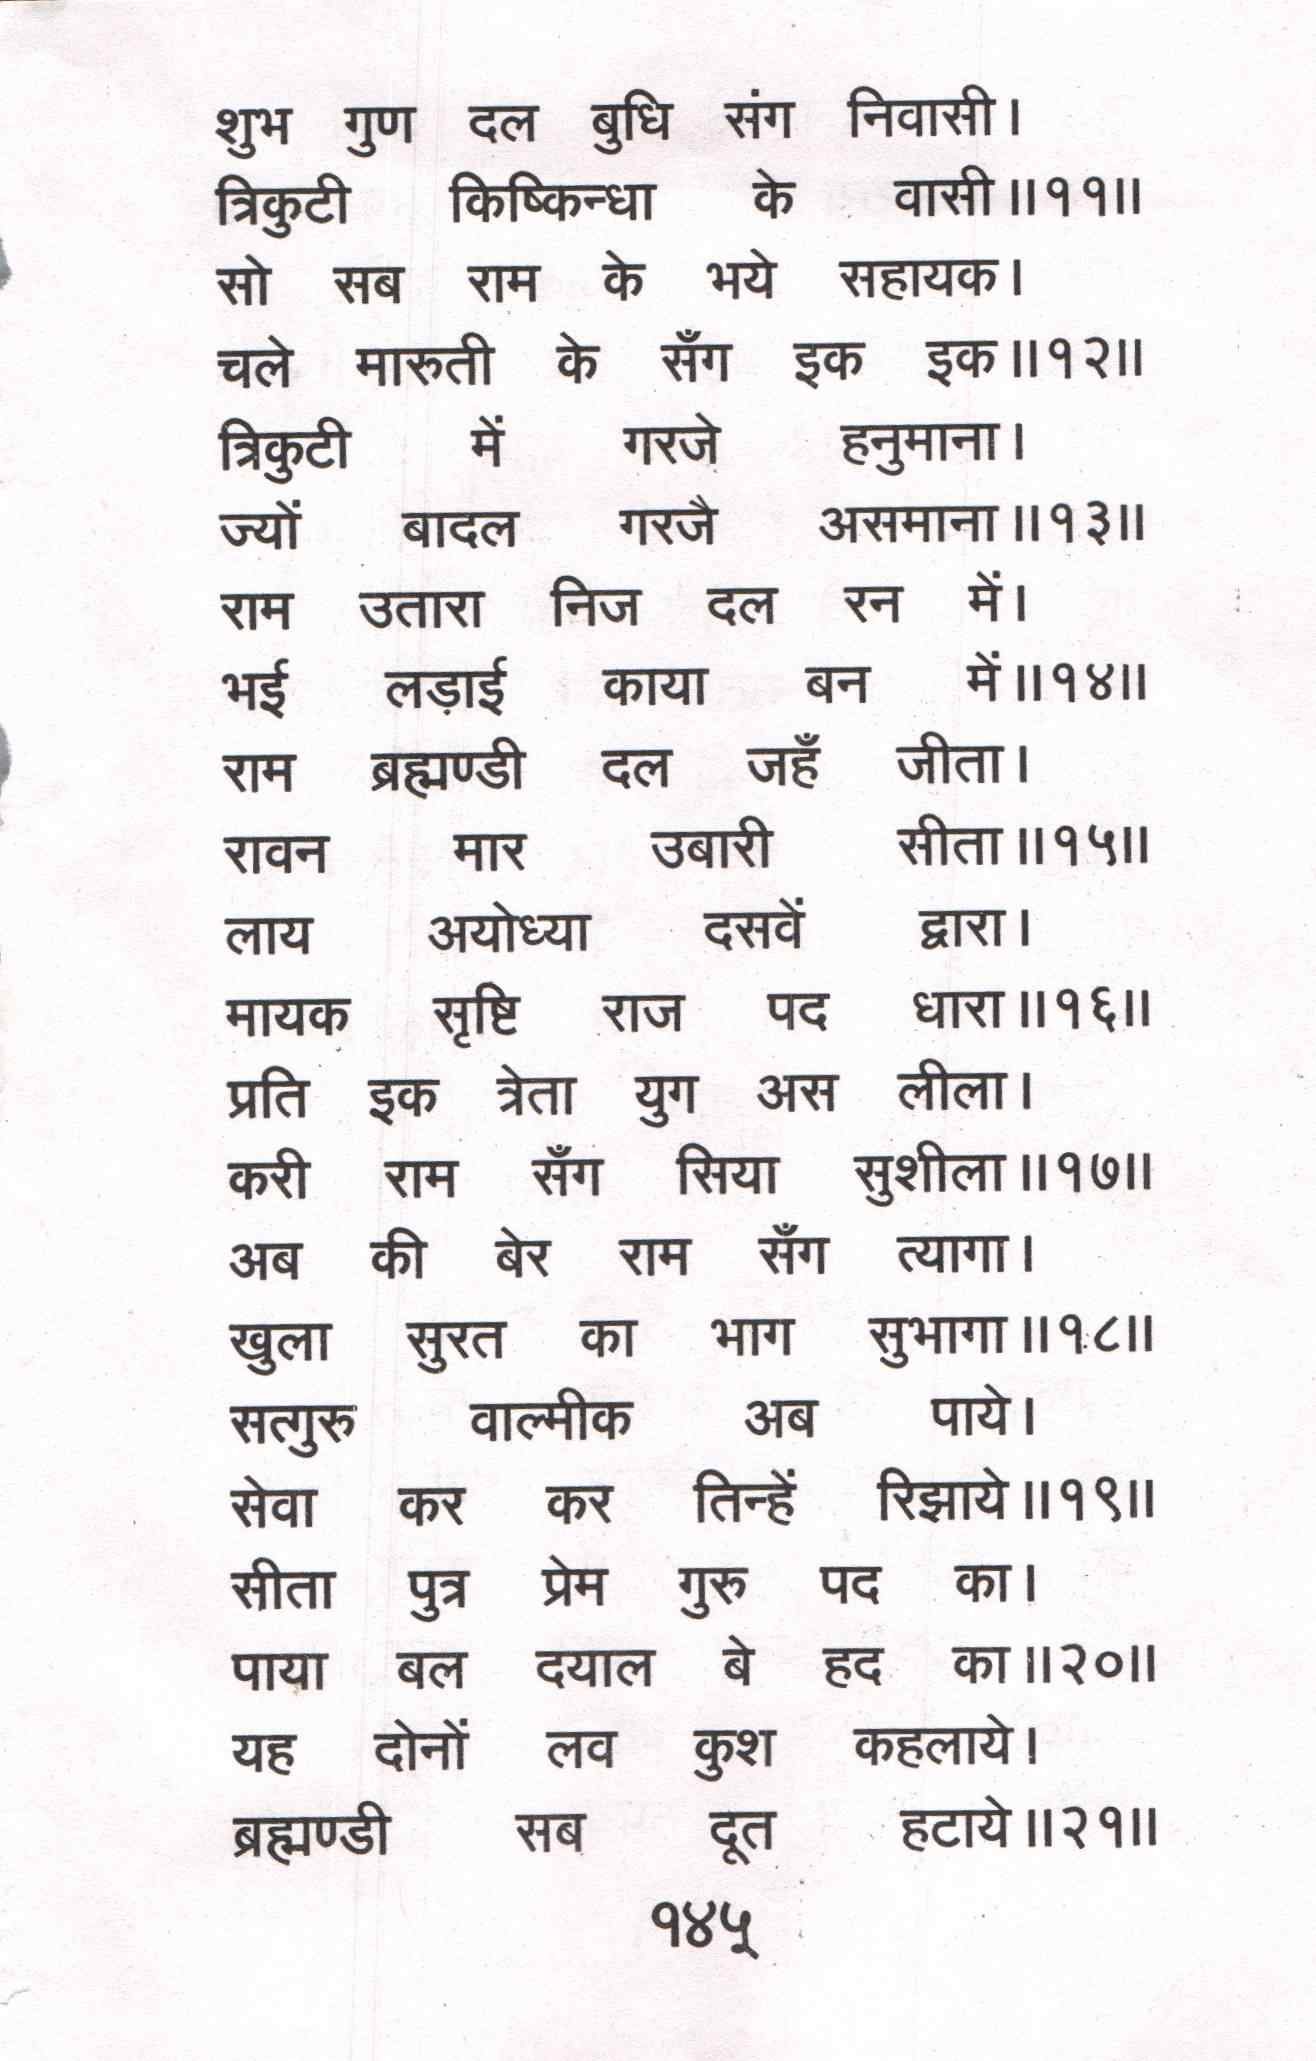 शुभ गुण दल बुधि संग निवासी।
त्रिकुटी किष्किन्धा के वासी॥११॥
सो सब राम के भये सहायक।
चले मारुती के सँग इक इक॥१२॥
त्रिकुटी में गरजे हनुमाना।
ज्यों बादल गरजै असमाना॥१३॥
राम उतारा निज दल रन में।
भई लड़ाई काया बन में॥१४॥
राम ब्रह्मण्डी दल जहँ जीता।
रावन मार उबारी सीता॥१५॥
लाय अयोध्या दसवें द्वारा।
मायक सृष्टि राज पद धारा॥१६॥
प्रति इक त्रेता युग अस लीला।
करी राम सँग सिया सुशीला॥१७॥
अब की बेर राम सँग त्यागा।
खुला सुरत का भाग सुभागा॥१८॥
सत्गुरु वाल्मीक अब पाये।
सेवा कर कर तिन्हें रिझाये॥१९॥
सीता पुत्र प्रेम गुरु पद का।
पाया बल दयाल बे हद का॥२०॥
यह दोनों लव कुश कहलाये।
ब्रह्मण्डी सब दूत हटाये॥२१॥
१४५